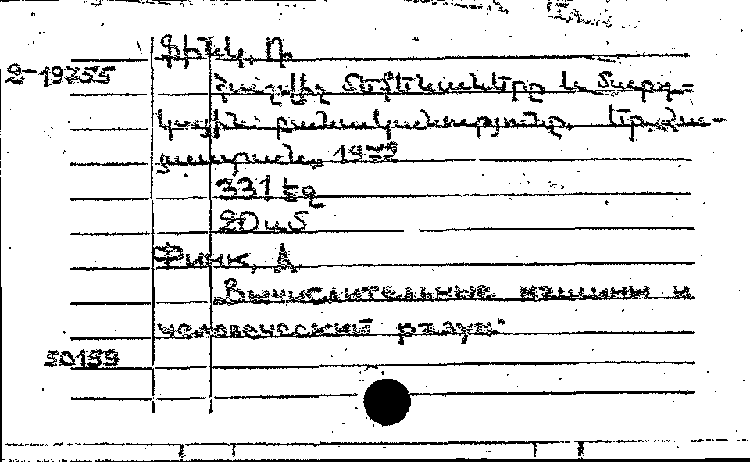 Ֆինկ, Դ
2-19255
Հաշվիչ մեքենաները և մարդ-
կային բանականությունը. Երևա-
331 էջ
20սմ
Финк, Д
Вычислительные машины и
человеческий разум.
50199